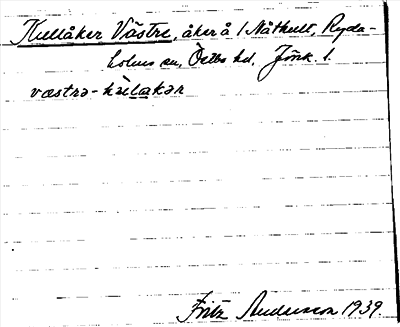 Kullåker Västre, åker å 1 Nåthult, Ryda-
holms sn, Östbo hd, Jönk. l.
væstrə-kùlakər
Fritz Andersson 1939.